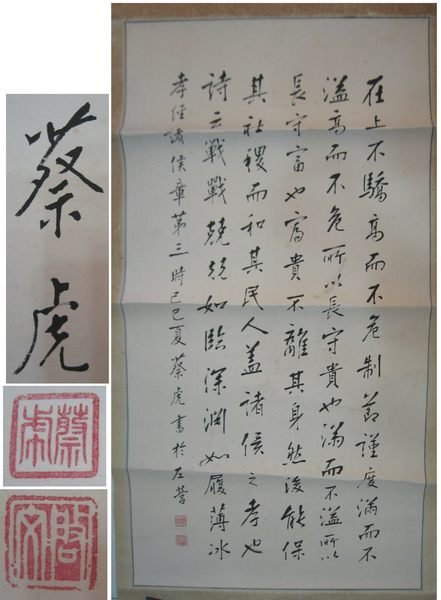 在上不驕高而不危制節謹度滿而不
溢高而不危所以長守貴也滿而不溢所以
長守富也富貴不離其身然後能保
其社稷而和其民人蓋諸侯之孝也
詩云戰戰兢兢如臨深淵如履薄冰
孝經諸侯章第三時己巳夏蔡虎書於左營
蔡虎
蔡虎